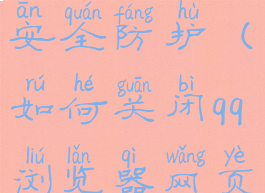 ān quán fáng hù
安全防护（
rú hé guān bì
如何关闭qq
liú lǎn qì wǎng yè
浏览器网页